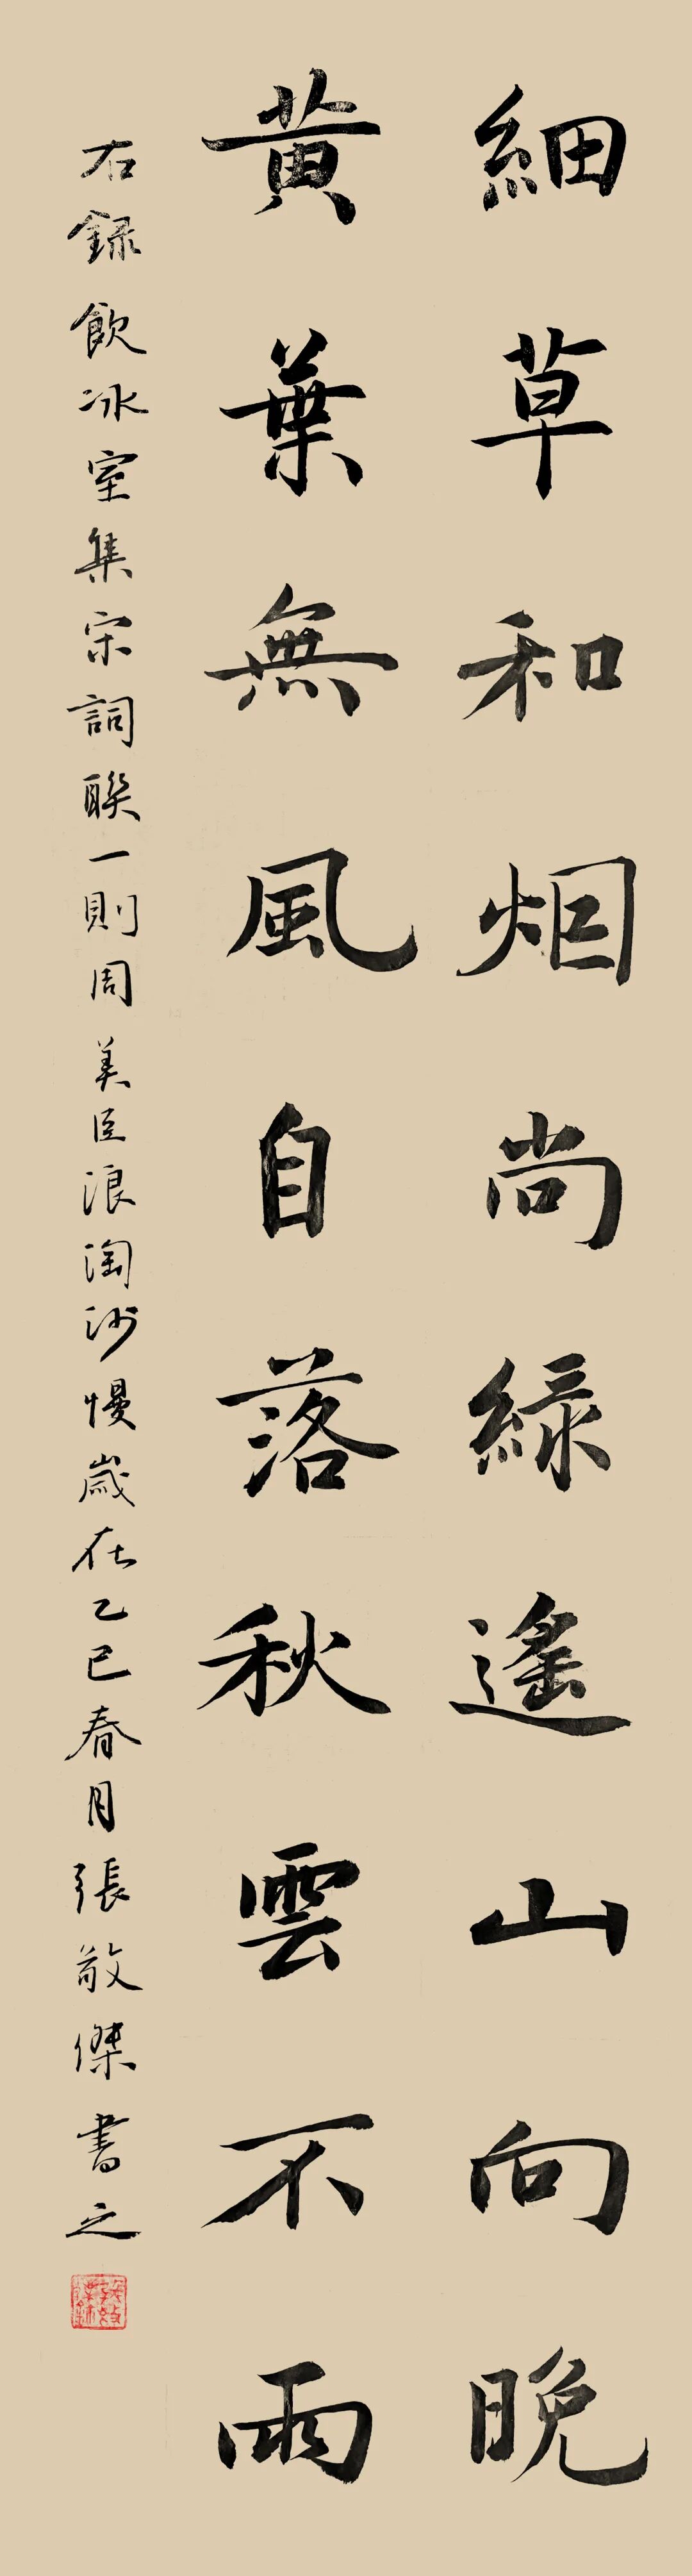 細草和烟尚綠遙山向晚
黃葉無風自落秋雲不雨
右録飲冰室集宋詞聯一則周美臣浪淘沙慢歲在乙巳春月張敬傑書之